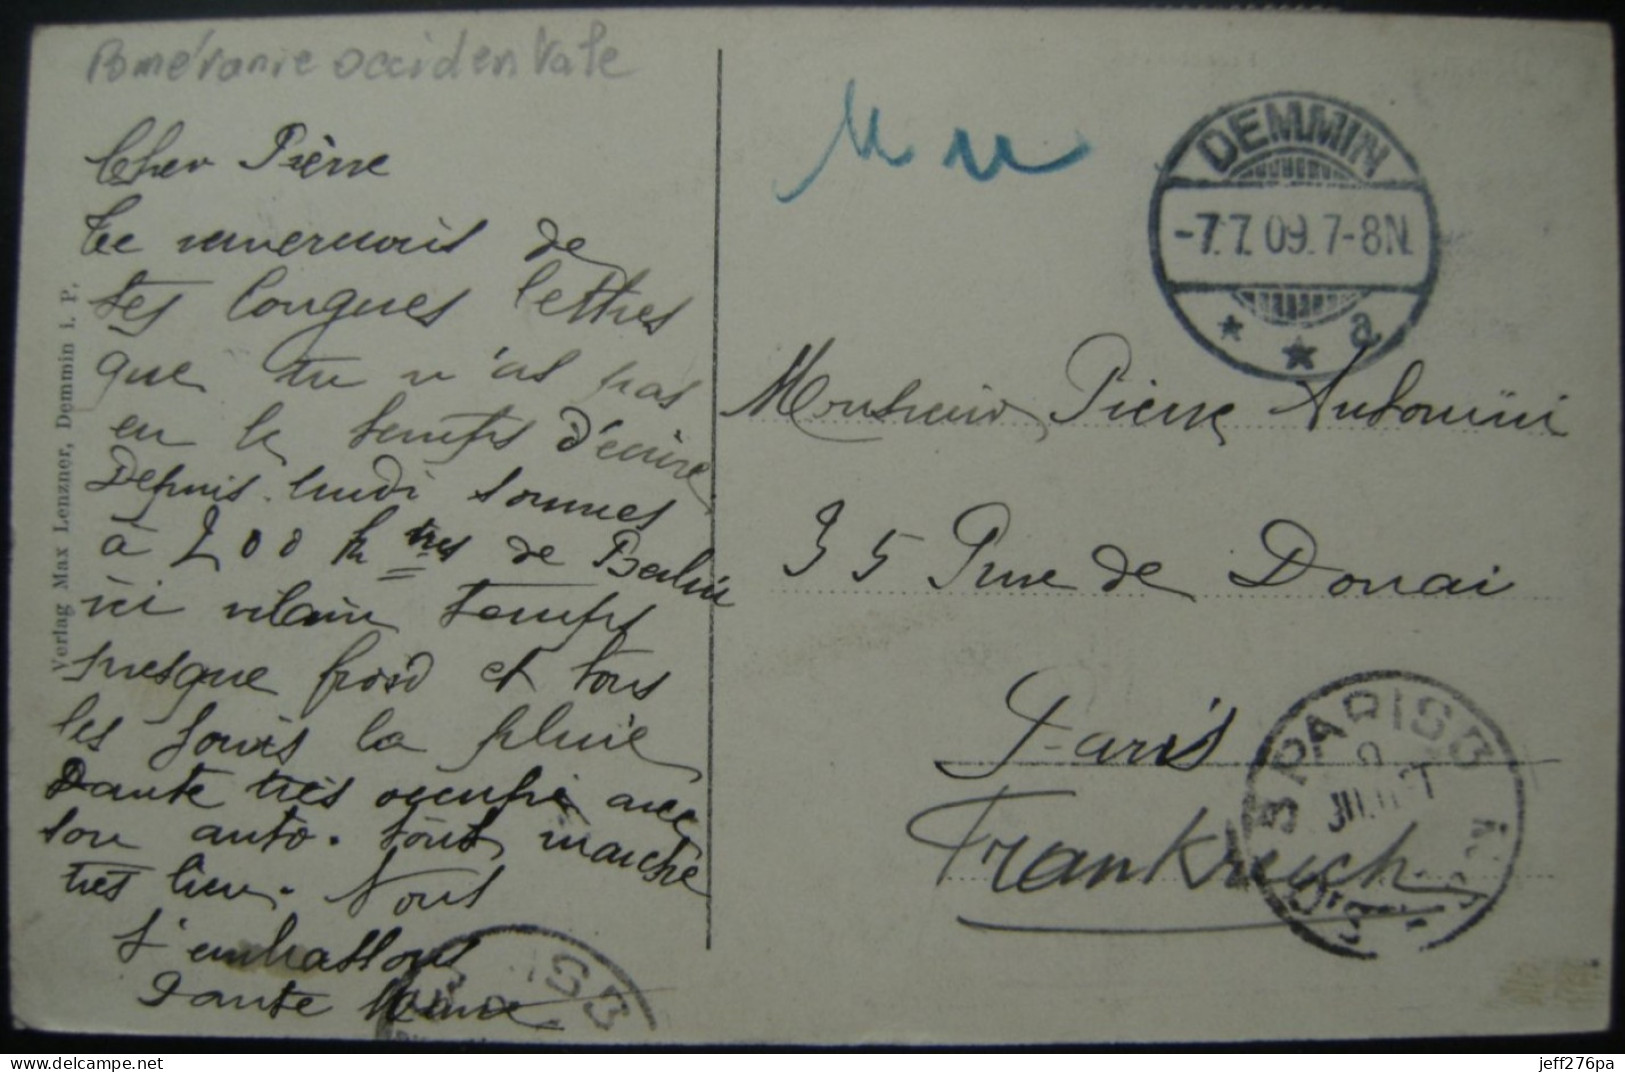 Poméranie occidentale
Cher Pierre
Te remercions de
tes longues lettres
que tu n'as pas
eu le temps d'écrire
Depuis lundi sommes
à 200 k tres de Berlin
ici vilain temps
presque froid et tous
les jours la pluie
Dante très occupé avec
son auto. tout marche
très bien. Nous
t'embrassons
Dante
Verlag Max Lenzner, Demmin i. P.
DEMMIN
-7.7.09.7-8N.
* * a
Monsieur Pierre Antonini
35 Rue de Douai
Paris
Frankreich
PARIS
JUIL
delcampe.net
jeff276pa